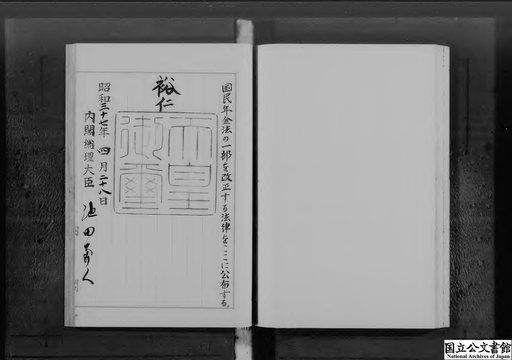 国民年金法の一部を改正する法律をここに公布する。
裕仁
天皇御璽
昭和三十七年四月二十八日
内閣総理大臣 池田勇人
国立公文書館
National Archives of Japan